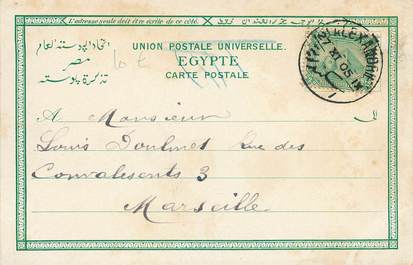 L'adresse seule doit être écrite de ce côté.
اتحاد البوستة العام
مصر
تذكرة بوستة
UNION POSTALE UNIVERSELLE.
EGYPTE
CARTE POSTALE
10 £
A Monsieur
Louis Doulmet Rue des
Convalescents 3
Marseille